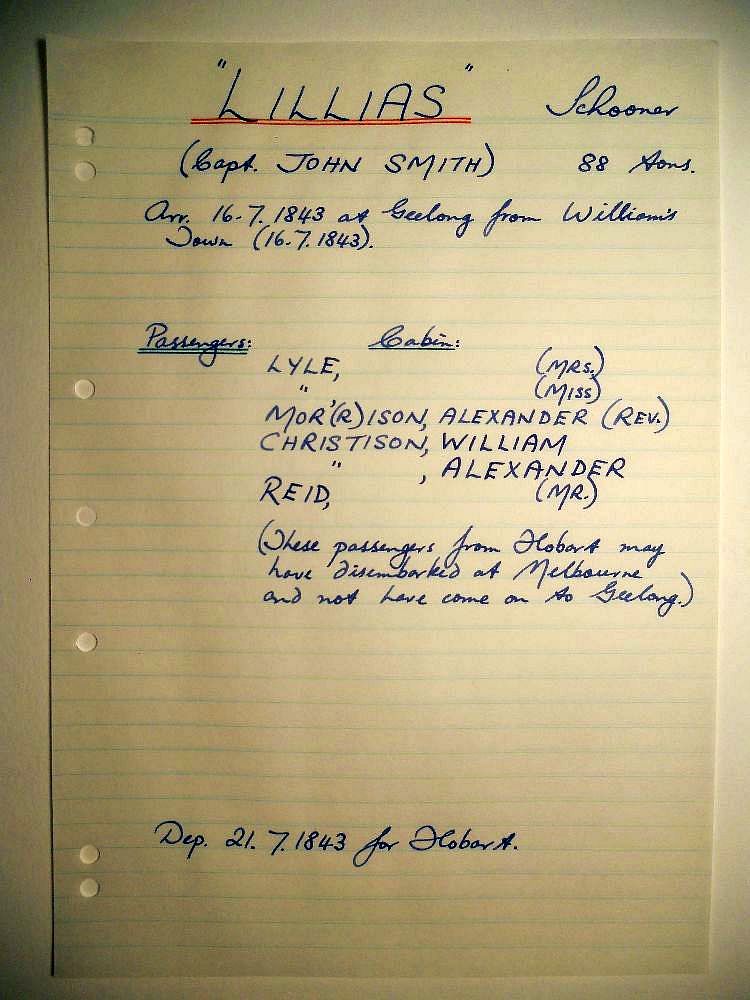 "LILLIAS" Schooner
(Capt. JOHN SMITH) 88 tons.
Arr. 16-7.1843 at Geelong from William's
Town (16.7.1843).
Passengers: Cabin:
LYLE, (MRS.)
" (MISS)
MOR'(R)ISON, ALEXANDER (REV.)
CHRISTISON, WILLIAM
" , ALEXANDER
REID, (MR.)
(These passengers from Hobart may
have disembarked at Melbourne
and not have come on to Geelong.)
Dep. 21.7.1843 for Hobart.